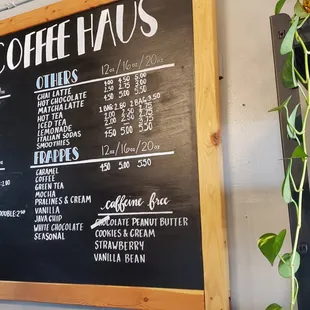 COFFEE HAUS
OTHERS 12oz/16oz/20oz
CHAI LATTE 4.00 4.50 5.00
HOT CHOCOLATE
MATCHA LATTE
HOT TEA 1 BAG 2 BAG
ICED TEA
LEMONADE
ITALIAN SODAS 4.00
SMOOTHIES 4.50 5.00 5.50
FRAPPES 12oz/16oz/20oz
CARAMEL 4.50 5.00 5.50
COFFEE
GREEN TEA
MOCHA
PRALINES & CREAM
VANILLA
JAVA CHIP
WHITE CHOCOLATE
SEASONAL
caffeine free
CHOCOLATE PEANUT BUTTER
COOKIES & CREAM
STRAWBERRY
VANILLA BEAN
DOUBLE 2.50